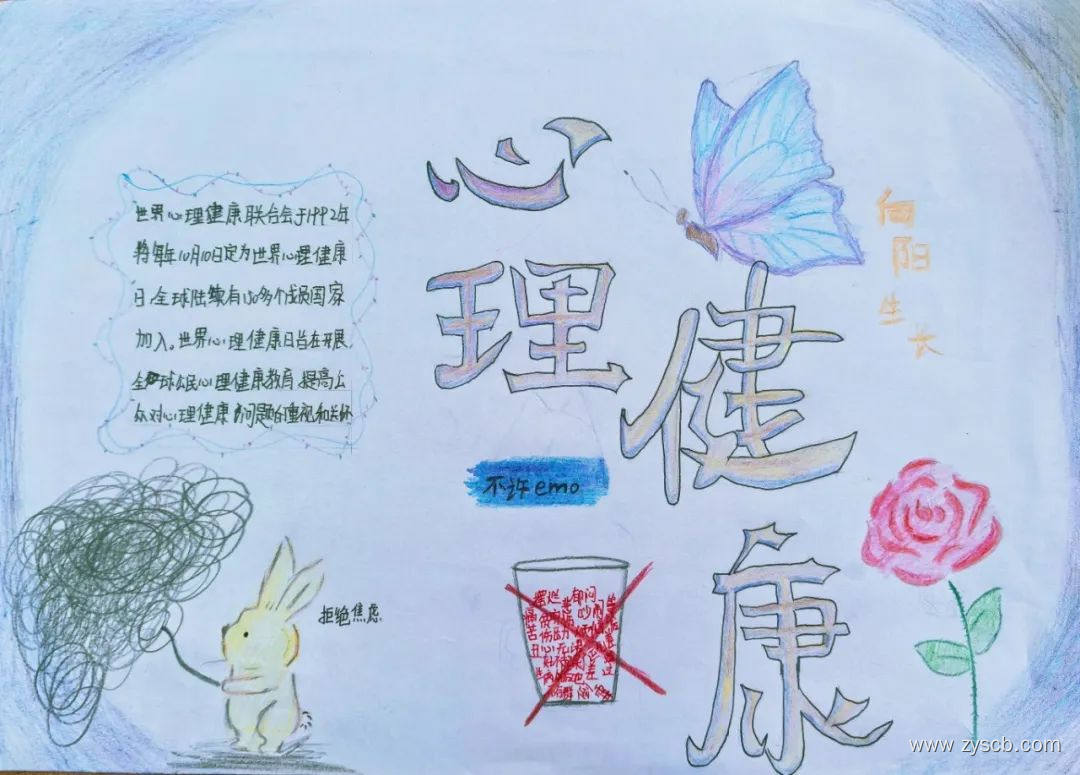 心理健康
向阳生长
世界心理健康联合会于1992年
将每年10月10日定为世界心理健康
日,全球陆续有150多个成员国家
加入。世界心理健康日旨在开展
全球公民心理健康教育,提高公
众对心理健康问题的重视和关怀
不许emo
拒绝焦虑
摆烂 郁闷
痛苦
www.zyscb.com